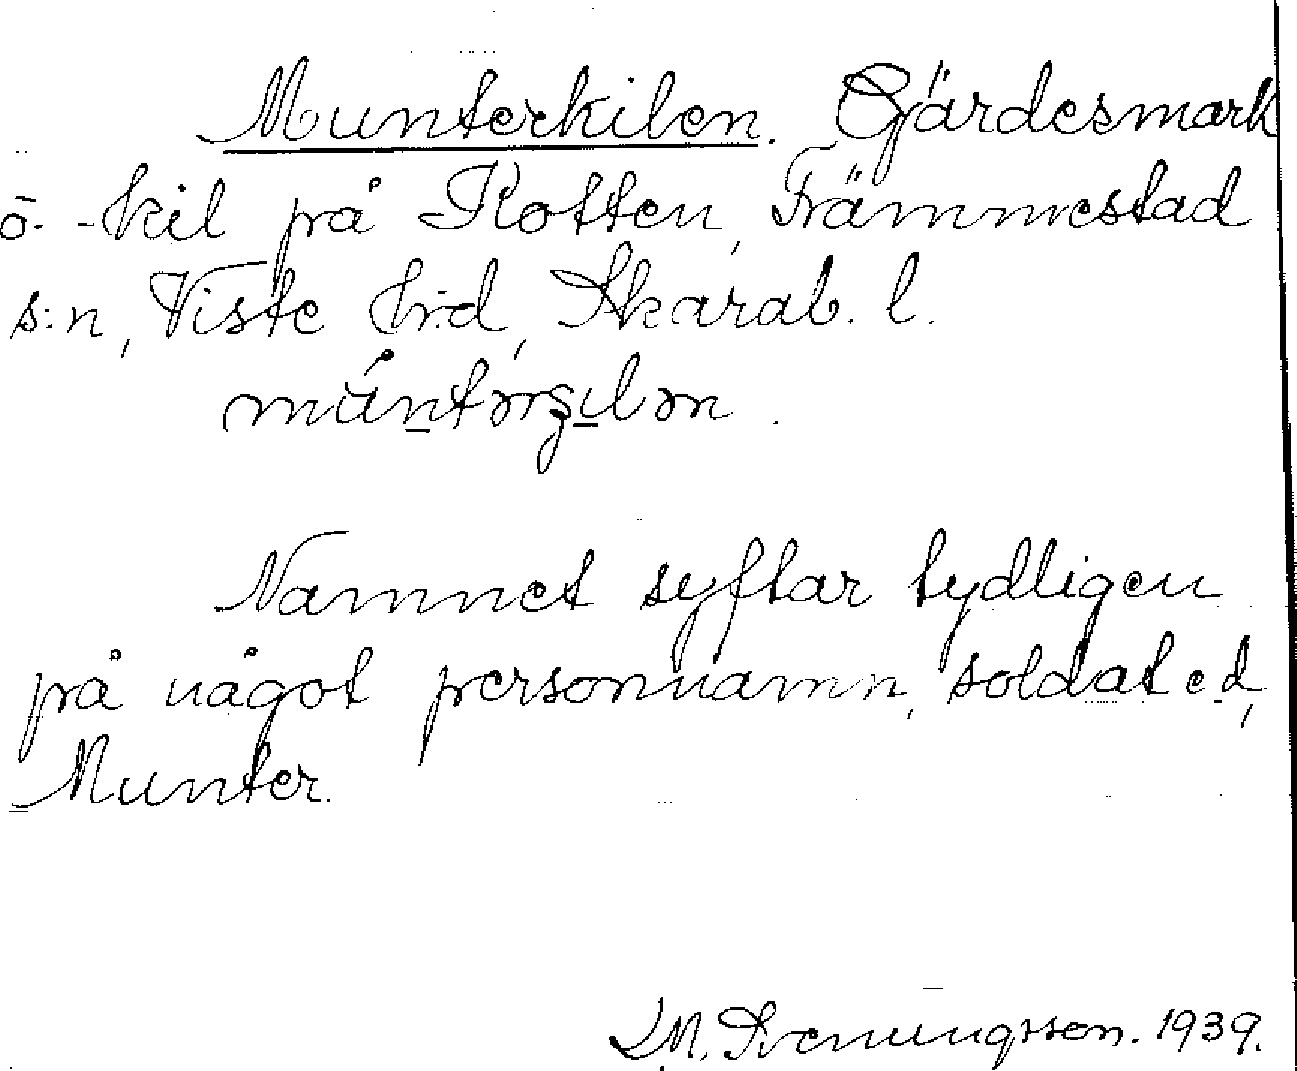 Munterkilen. Gärdesmark
o. -kil på Kotten, Främmestad
s:n, Viste h:d, Skarab. l.
Namnet syftar tydligen
på något personnamn, soldat e d,
Munter.
L M. Svenungsson. 1939.